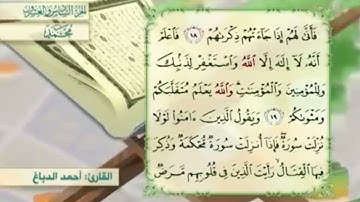 الجزء السادس والعشرون
محمد
فَأَنَّىٰ لَهُمْ إِذَا جَاءَتْهُمْ ذِكْرَىٰهُمْ ١٨ فَاعْلَمْ
أَنَّهُ لَا إِلَٰهَ إِلَّا اللَّهُ وَاسْتَغْفِرْ لِذَنۢبِكَ
وَلِلْمُؤْمِنِينَ وَالْمُؤْمِنَٰتِ وَاللَّهُ يَعْلَمُ مُتَقَلَّبَكُمْ
وَمَثْوَىٰكُمْ ١٩ وَيَقُولُ الَّذِينَ ءَامَنُوا لَوْلَا
نُزِّلَتْ سُورَةٌ فَإِذَا أُنزِلَتْ سُورَةٌ مُحْكَمَةٌ وَذُكِرَ
فِيهَا الْقِتَالُ رَأَيْتَ الَّذِينَ فِي قُلُوبِهِم مَّرَضٌ
القارئ: أحمد الدباغ